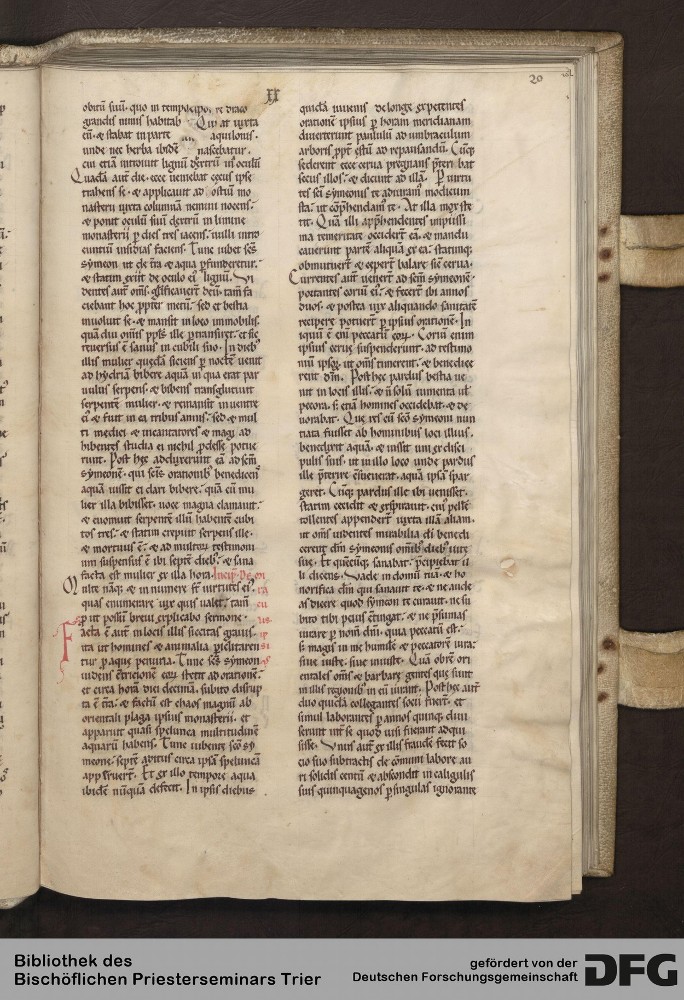 XX
20
obitū suū. quo in temp
grandis nimis habitab
eū. & stabat in parte aquilonis.
unde nec herba ibidē nascebatur.
cui etiā introiuit lignū dextrū in oculū
Quadā aut̄ die. ecce ueniebat cecus ipse
trahens se. & applicauit ad ostiū mo
nasterii iuxta columnā nemini nocens.
& ponit oculū suū dextrū in limine
monasterii p̱ dies tres iacens. nulli intro
euntiū insidias faciens. Tunc iubet sc̄s
symeon ut de tr̄a & aqua p̱funderetur.
& statim exiit de oculo ei᾽ lignū. Vi
dentes aut̄ om̄s. gl̄ificauer̄t deū. tam̄ fa
ciebant hoc ꝓpter metū. sed & bestia
inuoluit se. & mansit in loco immobilis.
reuersus ē sanus in cubili suo. In dieb᾽
illis mulier quedā siciens p̱ noctē uenit
ad hydriā bibere aquā in qua erat par
uulus serpens. & bibens transglutiuit
serpentē mulier. & remansit in uentre
ei᾽ & fuit in ea tribus annis. sed & mul
ti medici & incantatores & magi ad
hibentes studia ei nichil ꝓdesse potue
runt. Post hec adduxerunt eā ad sc̄m
symeonē. qui sc̄is orationib᾽ benedicens
aquā iussit ei dari bibere. quā cū mu
lier illa bibisset. uoce magna clamauit.
& euomuit serpentē illū habentē cubi
tos tres. & statim crepuit serpens ille.
& mortuus ē. & ad multorꝝ testimoni
um suspensus ē ibi septē dieb᾽. & sana
facta est mulier ex illa hora.
Multe nāq; & in numere st̄ uirtutes ei᾽.
quas enumerare uix quis ualet. tam̄
ut possū breui explicabo sermone.
Facta ē aut̄ in locis illis siccitas grauis.
ita ut homines & animalia p̱iclitaren
tur p̱ aque penuria. Tunc sc̄s symeon
uidens ... eorꝝ stetit ad orationē.
et circa horā diei decimā. subito disrup
ta ē tr̄a. & factū est chaos magnū ab
orientali plaga ipsius monasterii. et
apparuit quasi spelunca multitudinē
aquarū habens. Tunc iubente sc̄o sy
meone. septē aditus circa ipsā speluncā
app̱ruert̄. Et ex illo tempore aqua
ibidē nūquā defecit. In ipsis diebus
quidā iuuenis de longe expetentes
orationē ipsius p̱ horam meridianam
diuerterunt paululū ad umbraculum
arboris ꝓpt̄ estū ad repausandū. Cūq;
sederent ecce cerua pregnans p̄teri bat
secus illos. & dicunt ad illā. P̱ uirtu
tes sc̄i symeonis te adiuram᾽ modicum
sta. ut cōp̄hendam᾽ te. At illa mox ste
tit. Quā illi app̄hendentes impiissi
ma temeritate occidert̄ eā. & mandu
cauerunt partē aliquā ex ea. statimq;
obmutuert̄ & ceper̄t balare sic̄ cerua.
Currentes aut̄ uener̄t ad sc̄m symeonē.
portantes coriū ei᾽. & fecer̄t ibi annos
duos. & postea uix aliquando sanitatē
recipere potuer̄t p̱ ipsius orationē. In
iquū ē eni peccatū eorꝝ. Coriū enim
ipsius cerue suspenderunt. ad testimo
niū ipsoꝝ. ut om̄s timerent. & benedice
rent dn̄m. Post hec pardus bestia ue
nit in locis illis. & ñ solū iumenta ul᾽
pecora. s; etiā homines occidebat. & de
uorabat. Que res cū sc̄o symeon nun
tiata fuisset ab hominibus loci illius.
benedixit aquā. & iussit uni ex disci
pulis suis. ut in illo loco unde pardus
ille p̄terire cōsueuerat. aquā ipsā spar
geret. Cūq; pardus ille ibi uenisset.
statim cecidit & expirauit. cui᾽ pellē
tollentes appender̄t iuxta illā aliam.
ut om̄s uidentes mirabilia di᾽ benedi
cerent dn̄m symeonis omib᾽ dieb᾽ uite
sue. Et quecūq; sanabat. p̄cipiebat il
li dicens. Vade in domū tuā. & ho
norifica dn̄m qui sanauit te. & ne aude
as dicere quod symeon te curauit. ne su
bito tibi peius cōtingat. & ne p̄sumas
iurare p̱ nom̄ dn̄i. quia peccatū est.
s; magis in me humilē & peccatorē iura.
siue iuste. siue iniuste. Quā ob rē ori
entales om̄s & barbare gentes que sunt
in illis regionib᾽ in eū iurant. Post hec aut̄
duo quidā collegantes socii fuer̄t. et
simul laborantes p̱ annos quinq; diui
serunt int̄ se quod uisi fuerant adqui
sisse. Vnus aut̄ ex illis fraudē fecit so
cio suo subtractis de cōmuni labore au
ri solidis centū & abscondit in caligulis
suis quinquagenos p̱ singulas ignorante
Bibliothek des
Bischöflichen Priesterseminars Trier
gefördert von der
Deutschen Forschungsgemeinschaft
DFG